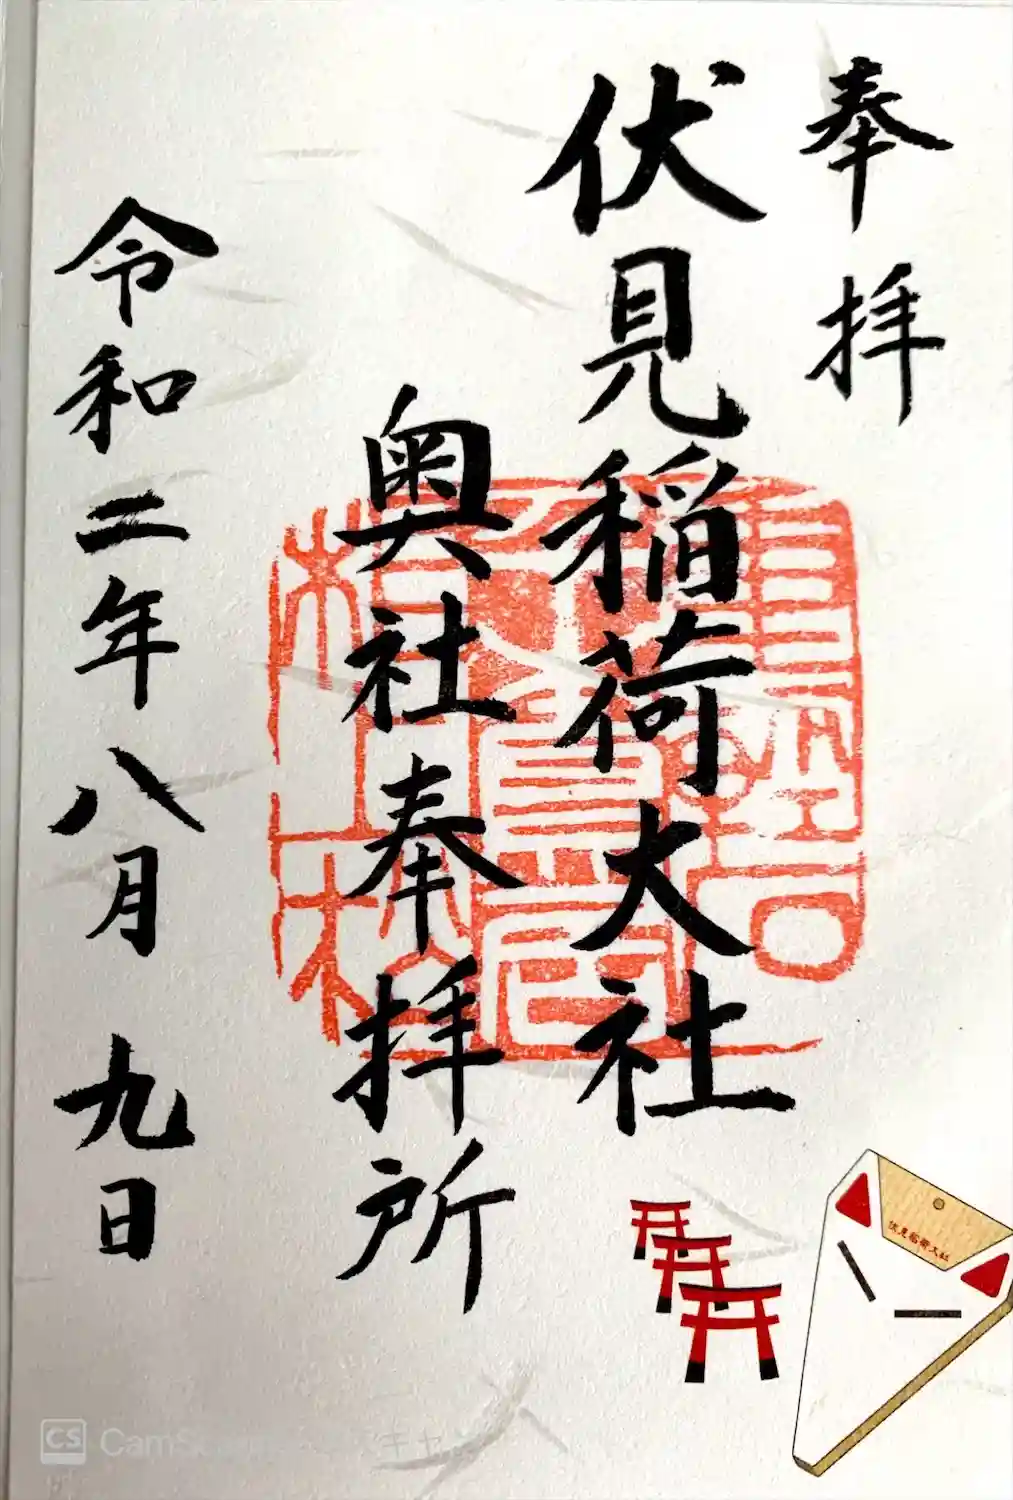 奉拝
伏見稲荷大社
奥社奉拝所
令和二年八月九日
伏見稲荷大社
CS CamSc